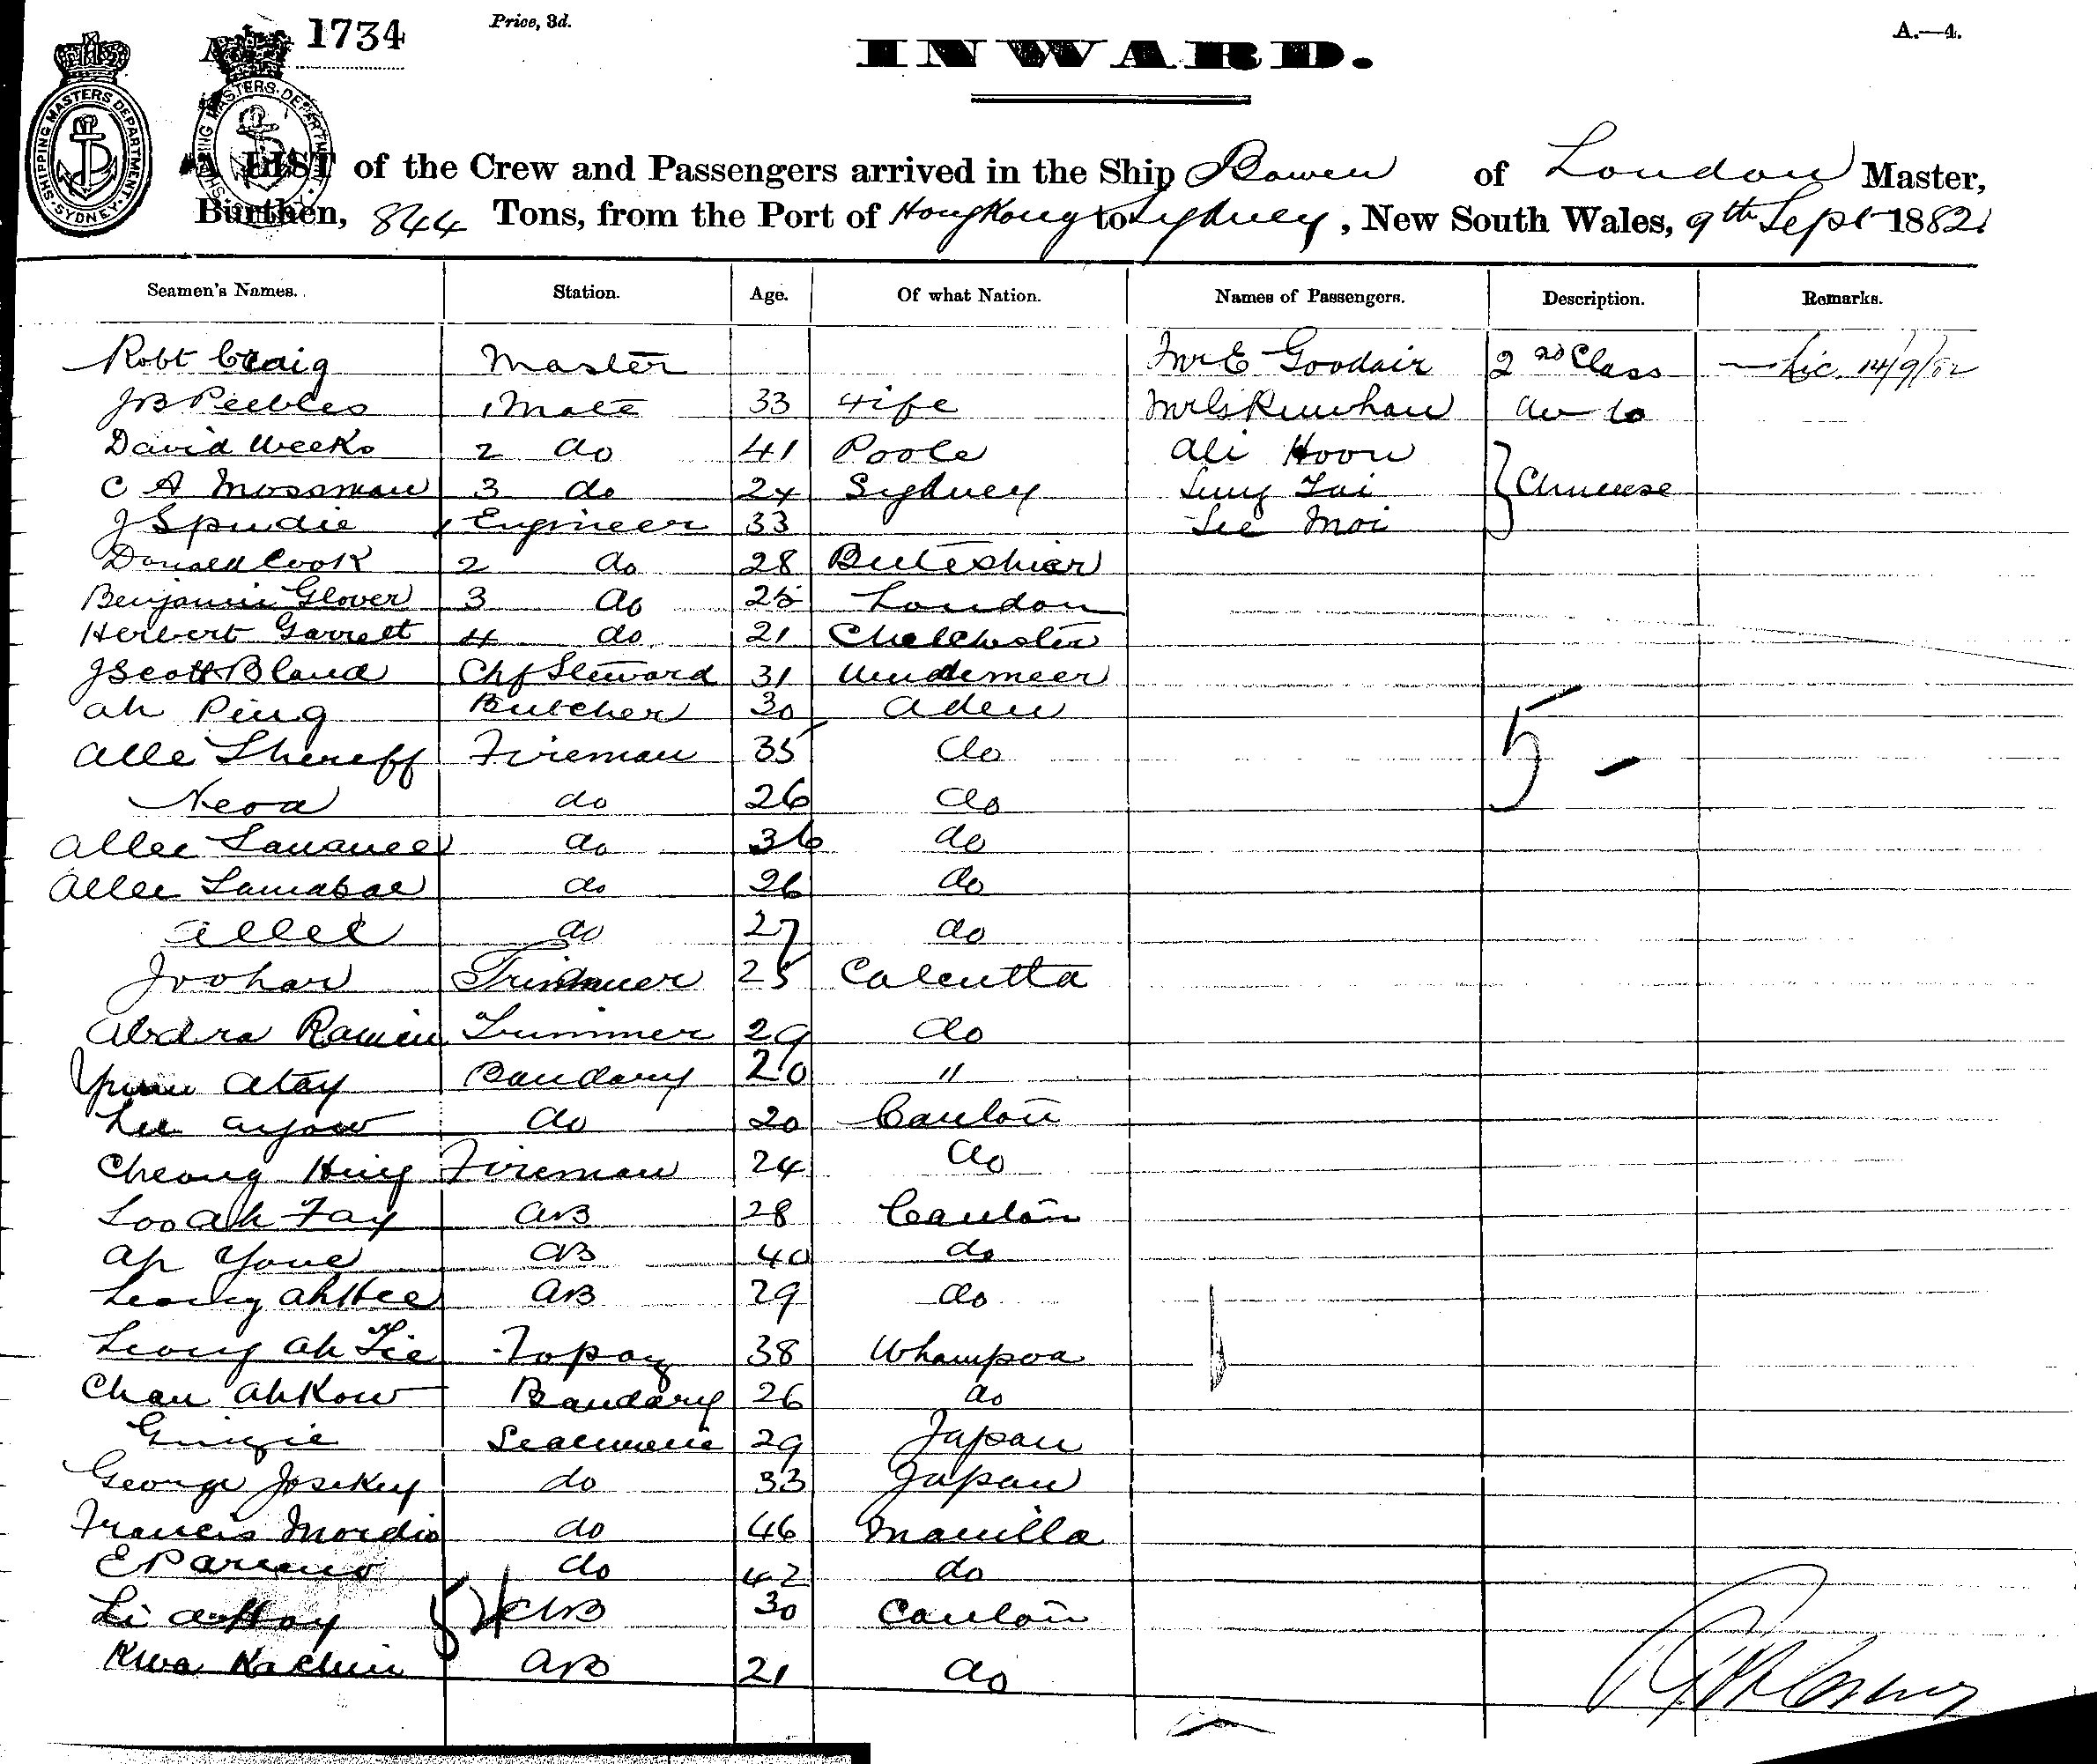 1734
Price, 3d.
A.—4.
INWARD.
SHIPPING MASTERS DEPARTMENT SYDNEY
A LIST of the Crew and Passengers arrived in the Ship Bowen of London Master,
Burthen, 844 Tons, from the Port of Hong Kong to Sydney, New South Wales, 9th Sept 1882.
Seamen's Names. Station. Age. Of what Nation. Names of Passengers. Description. Remarks.
Robt Craig Master Mr E Goodair 2nd Class Lic. 14/9/82
J B Peebles 1 Mate 33 Fife do
David Weeks 2 do 41 Poole Ali Hoon
C A Mossman 3 do 24 Sydney Sung Tai Chinese
J Spudie 1 Engineer 33 See Moi
Donald Cook 2 do 28 Buteshier
Benjamin Glover 3 do 25 London
Herbert Garrett 4 do 21
J Scott Bland Chf Steward 31
Ah Ping Butcher 30 Aden
Alle Shereff Fireman 35 do
Neoa do 26 do
Allee do 36 do
Allee do 26 do
Allee do 27 do
Joohar Trimmer 25 Calcutta
Abdra Trimmer 29 do
Atay Bandary 20 "
Lee do 20 Canton
Cheong Hing Fireman 24 do
Loo Ah Fay AB 28 Canton
Ap Yone AB 40 do
Leong Ah Hee AB 29 do
Leong Ah Topaz 38 Whampoa
Chan Ah Kow Bandary 26 do
29 Japan
George do 33 Japan
Francis do 46 Manilla
E do 42 do
Li AB 30 Canton
Kwa AB 21 do
5 -
54